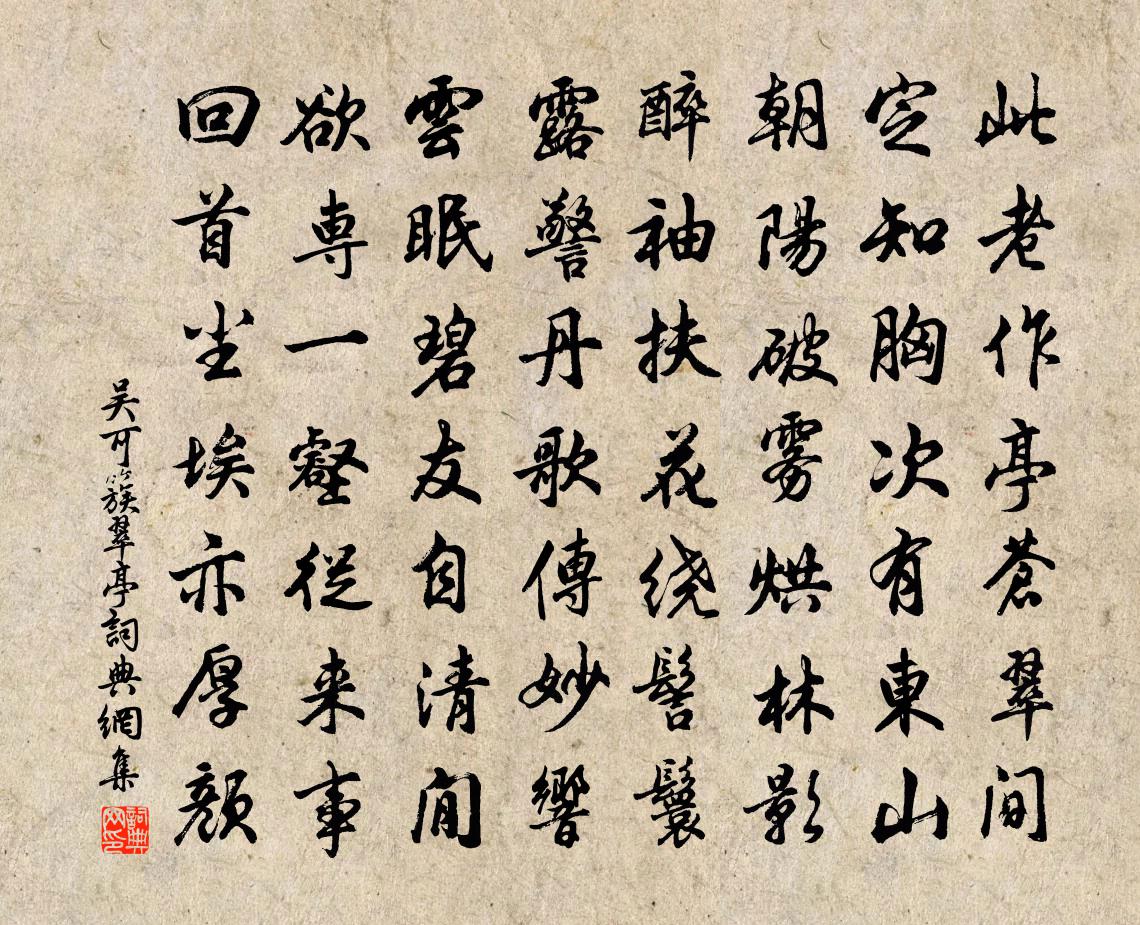 此老作亭蒼翠间
定知胸次有東山
朝陽破雾烘林影
醉袖扶花绕髻鬟
露警丹歌傳妙響
雲眠碧友自清闲
欲専一壑從来事
回首尘埃亦厚颜
吴可簇翠亭詞典網集
詞典网印